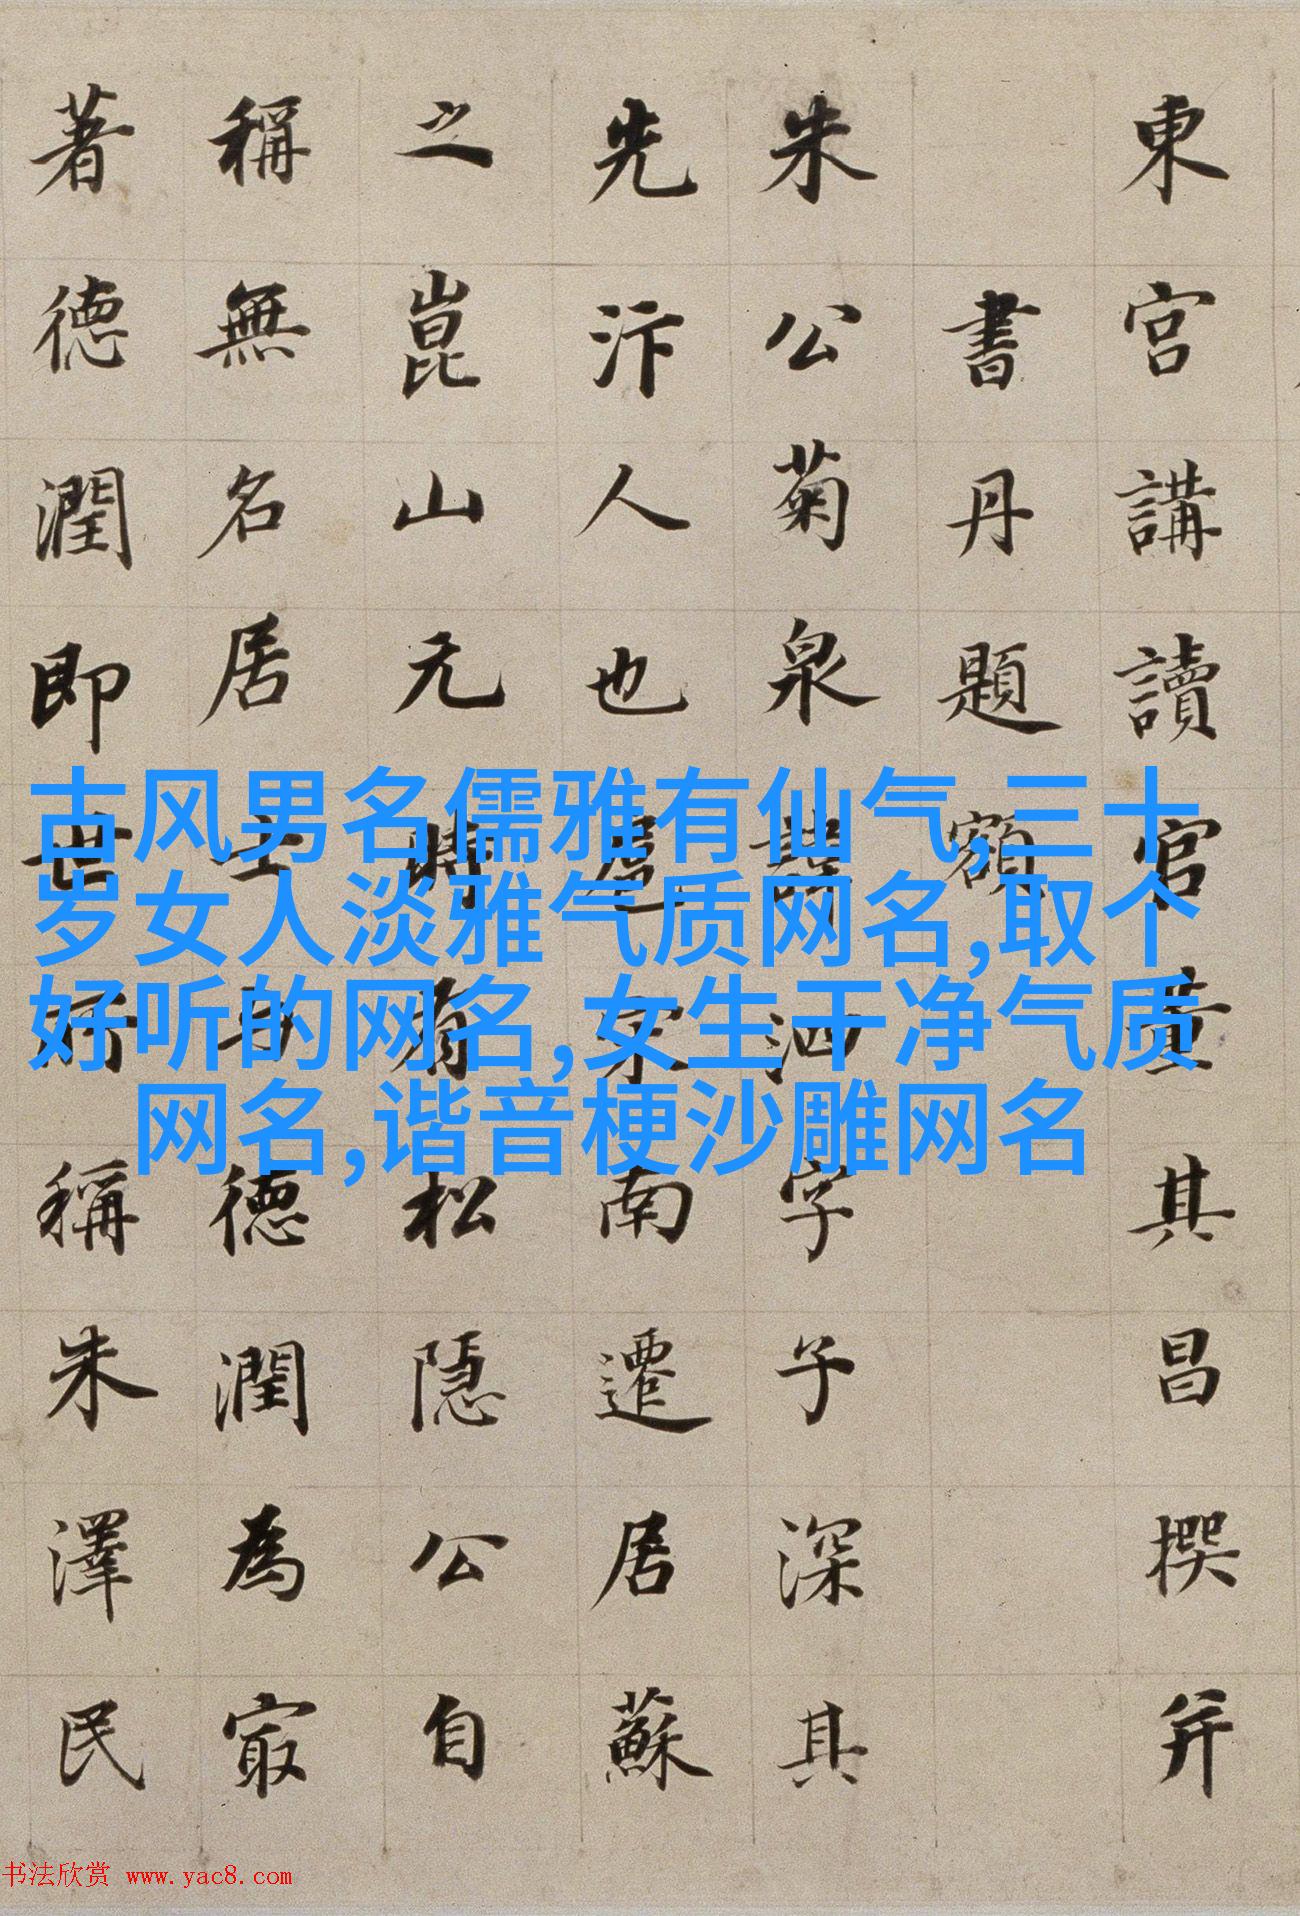 東宮講讀官董其昌撰并
書丹題額
朱公菊泉諱泗字子深其
先汴人也扈宋南遷居蘇
之崑山元時有松隱公自
稱無名居士子德潤為冣
著德潤即世所稱朱澤民
古风男名儒雅有仙气,三十
岁女人淡雅气质网名,取个
好听的网名,女生干净气质
网名,谐音梗沙雕网名
书法欣赏 www.yac8.com